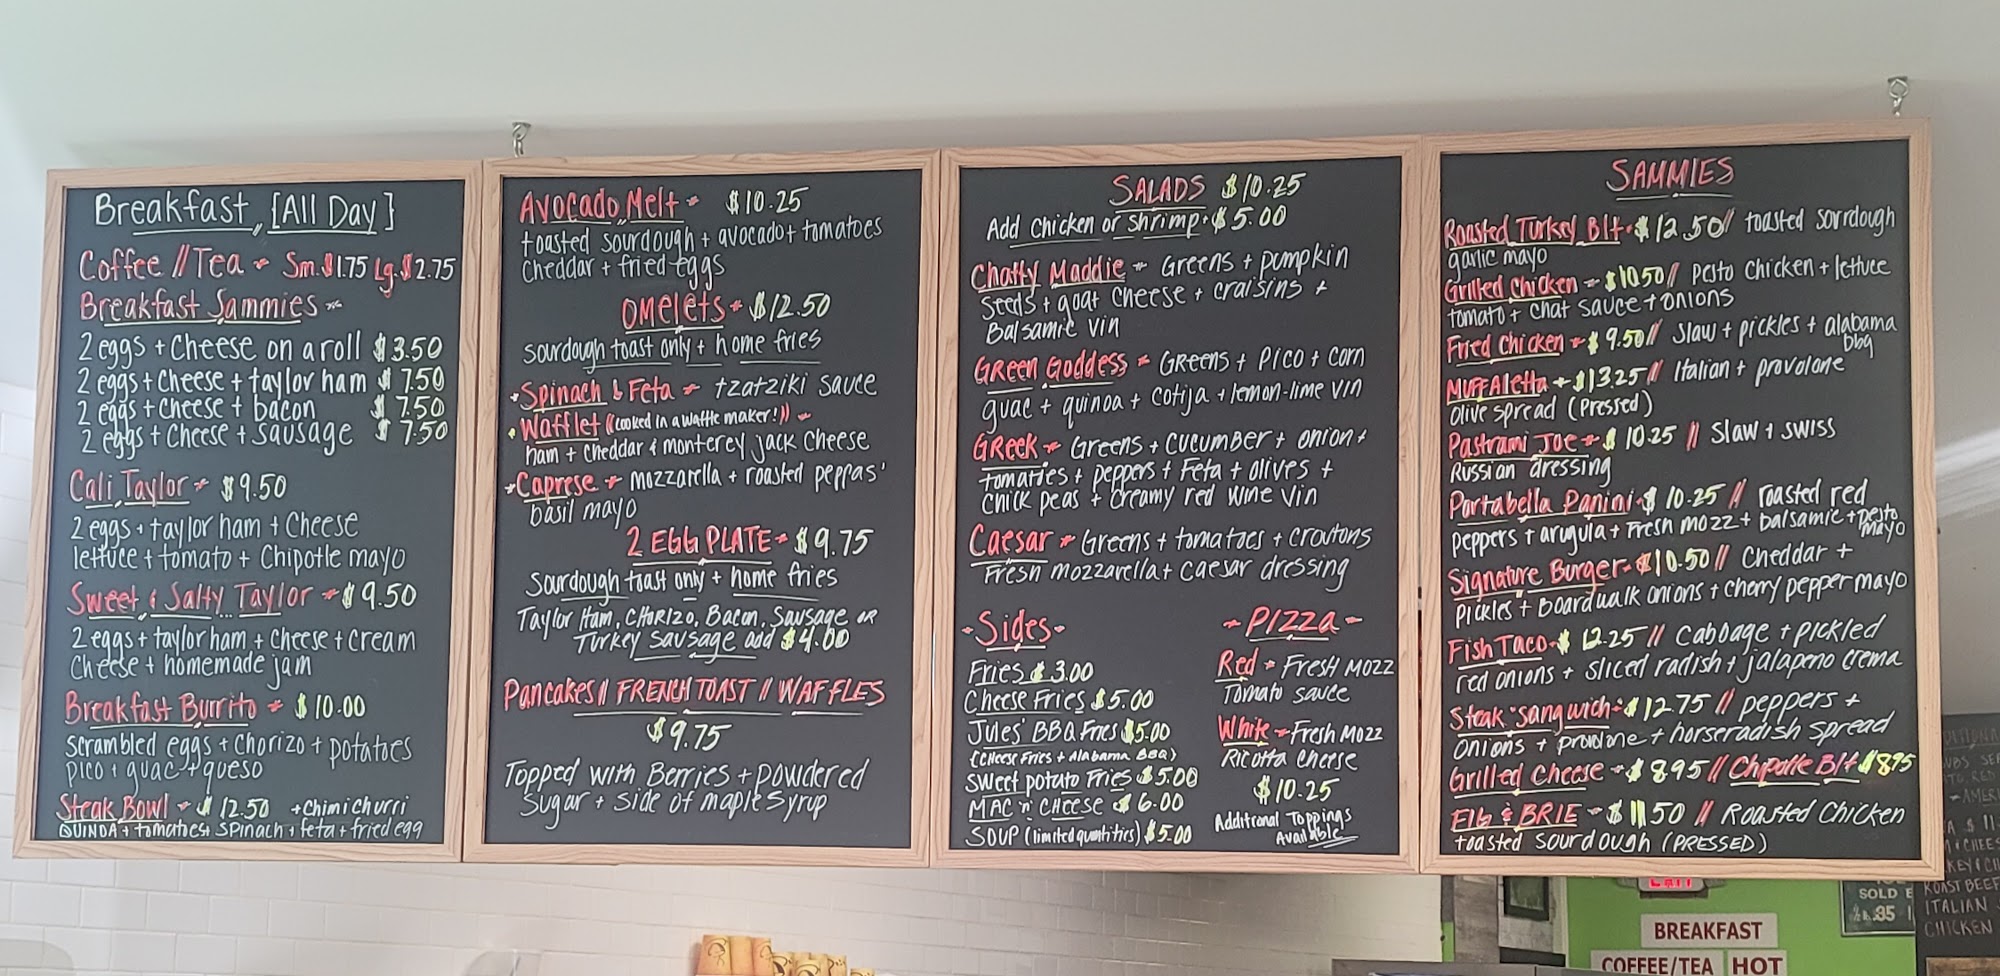 Breakfast [All Day]
Coffee // Tea - Sm. $1.75 Lg. $2.75
Breakfast Sammies -
2 eggs + Cheese on a roll $3.50
2 eggs + Cheese + taylor ham $7.50
2 eggs + Cheese + bacon $7.50
2 eggs + Cheese + sausage $7.50
Cali Taylor - $9.50
2 eggs + taylor ham + Cheese
lettuce + tomato + Chipotle mayo
Sweet & Salty Taylor - $9.50
2 eggs + taylor ham + Cheese + Cream
Cheese + homemade jam
Breakfast Burrito - $10.00
Scrambled eggs + Chorizo + potatoes
pico + guac + queso
Steak Bowl - $12.50 + Chimichurri
QUINOA + tomatoes + Spinach + feta + fried egg
Avocado Melt - $10.25
toasted sourdough + avocado + tomatoes
Cheddar + fried eggs
Omelets - $12.50
Sourdough toast only + home fries
Spinach & Feta - tzatziki sauce
Wafflet (cooked in a waffle maker!) -
ham + Cheddar & monterey jack Cheese
Caprese - mozzarella + roasted peppas'
basil mayo
2 EGG PLATE - $9.75
Sourdough toast only + home fries
Taylor Ham, Chorizo, Bacon, Sausage or
Turkey Sausage add $4.00
Pancakes // FRENCH TOAST // WAFFLES
$9.75
Topped with Berries + powdered
Sugar + side of maple syrup
SALADS $10.25
Add Chicken or Shrimp - $5.00
Chatty Maddie - Greens + pumpkin
Seeds + goat Cheese + craisins +
Balsamic vin
Green Goddess - Greens + Pico + corn
guac + quinoa + cotija + lemon-lime vin
Greek - Greens + Cucumber + onion +
tomaties + peppers + Feta + olives +
Chick peas + Creamy red wine vin
Caesar - Greens + tomatoes + croutons
Fresh mozzarella + Caesar dressing
- Sides -
Fries $3.00
Cheese Fries $5.00
Jules' BBQ Fries $5.00
(Cheese Fries + Alabama BBQ)
Sweet potato Fries $5.00
MAC 'n' Cheese $6.00
SOUP (limited quantities) $5.00
- Pizza -
Red - Fresh Mozz
Tomato sauce
White - Fresh Mozz
Ricotta Cheese
$10.25
Additional Toppings
Available
SAMMIES
Roasted Turkey Blt - $12.50 // toasted sourdough
garlic mayo
Grilled Chicken - $10.50 // Pesto Chicken + lettuce
tomato + chat sauce + onions
Fried Chicken - $9.50 // Slaw + pickles + alabama
bbq
MUFFAletta - $13.25 // Italian + provolone
olive spread (Pressed)
Pastrami Joe - $10.25 // Slaw + Swiss
Russian dressing
Portabella Panini - $10.25 // roasted red
peppers + arugula + Fresh mozz + balsamic + pesto
mayo
Signature Burger - $10.50 // Cheddar +
Pickles + Boardwalk onions + cherry pepper mayo
Fish Taco - $12.25 // Cabbage + pickled
red onions + sliced radish + jalapeno crema
Steak "sangwich" - $12.75 // peppers +
onions + provolone + horseradish spread
Grilled Cheese - $8.95 // Chipotle Blt $8.95
FIG & BRIE - $11.50 // Roasted Chicken
toasted sourdough (PRESSED)
EXIT
BREAKFAST
COFFEE/TEA HOT
SOLD
ROAST BEEF
ITALIAN
CHICKEN